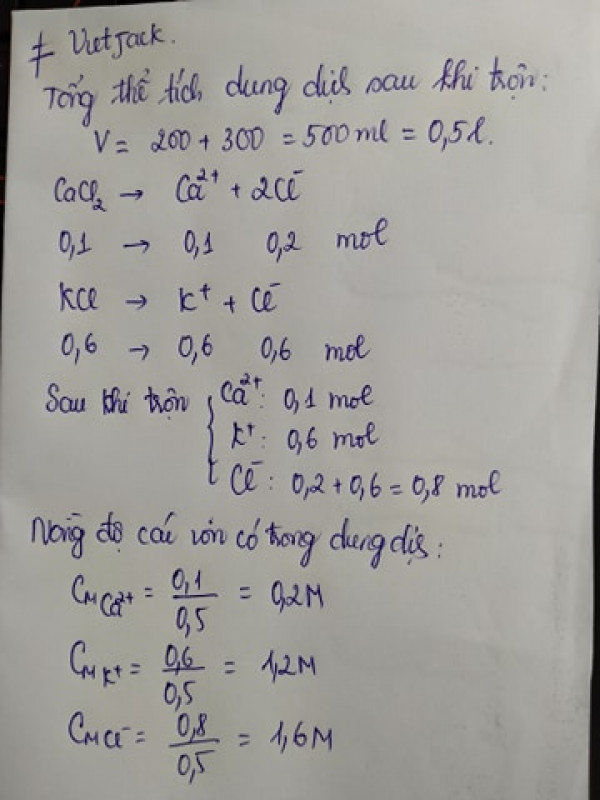 # VietJack.
Tổng thể tích dung dịch sau khi trộn:
V = 200 + 300 = 500 ml = 0,5 l.
CaCl₂ → Ca²⁺ + 2Cl⁻
0,1 → 0,1 0,2 mol
KCl → K⁺ + Cl⁻
0,6 → 0,6 0,6 mol
Sau khi trộn { Ca²⁺: 0,1 mol
K⁺: 0,6 mol
Cl⁻: 0,2 + 0,6 = 0,8 mol
Nồng độ các ion có trong dung dịch:
C_M Ca²⁺ = 0,1 / 0,5 = 0,2M
C_M K⁺ = 0,6 / 0,5 = 1,2M
C_M Cl⁻ = 0,8 / 0,5 = 1,6M